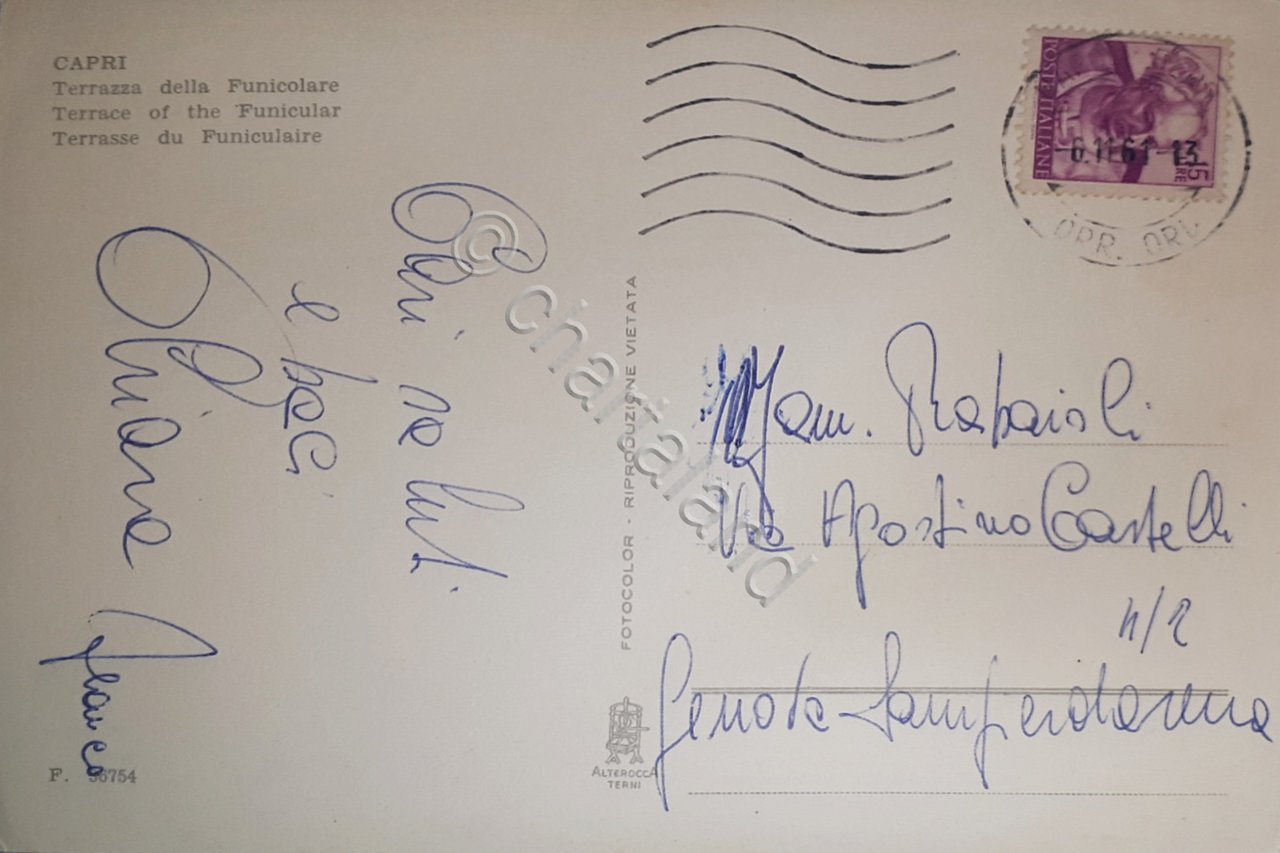 CAPRI
Terrazza della Funicolare
Terrace of the Funicular
Terrasse du Funiculaire
Cari saluti
e baci
Chiara Franco
F. 56754
FOTOCOLOR - RIPRODUZIONE VIETATA
ALTEROCCA
TERNI
POSTE ITALIANE
15
LIRE
6.11.61-13
Fam. Rabaioli
Via Agostino Castelli
4/2
Genova Sampierdarena
© chartaland